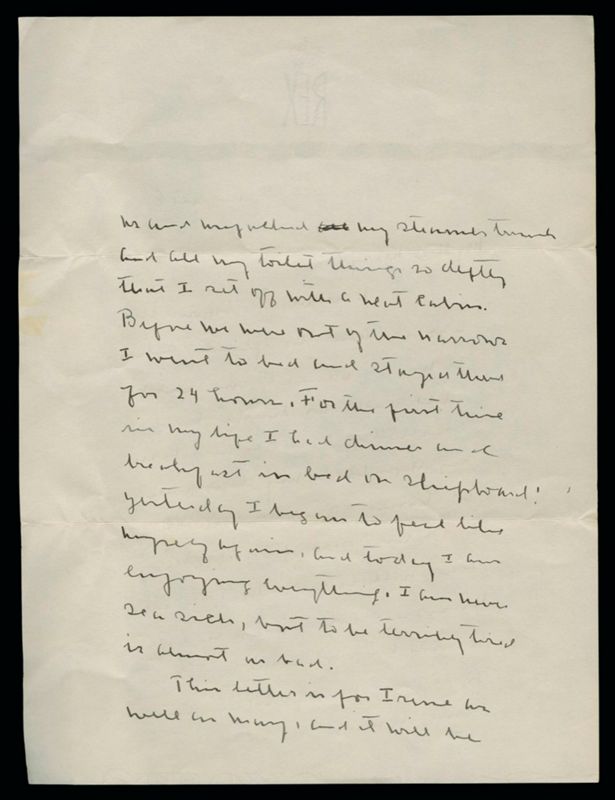 REX
us and unpacked my steamer trunk
and all my toilet things so deftly
that I set off with a neat cabin.
Before we were out of the narrows
I went to bed and stayed there
for 24 hours. For the first time
in my life I had dinner and
breakfast in bed on shipboard!
yesterday I began to feel like
myself again, and today I am
enjoying everything. I am never
sea sick, but to be terribly tired
is almost as bad.
This letter is for Irene as
well as Mary, and it will be